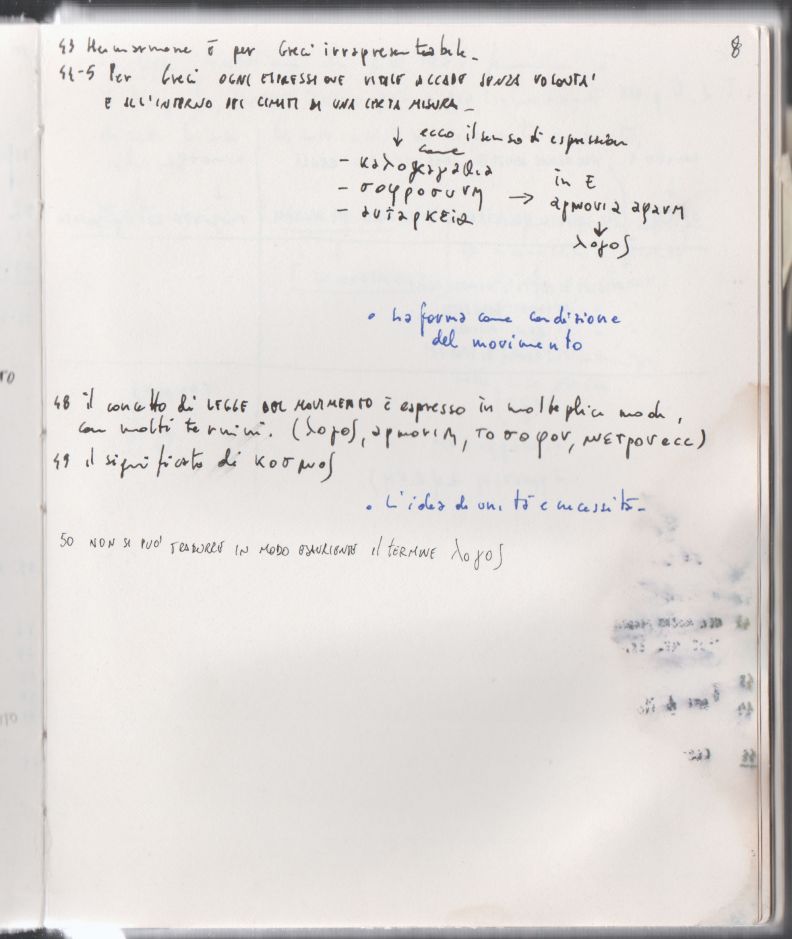 8
43 Hermarmone è per Greci irrapresentabile.
44-5 Per Greci OGNI ESPRESSIONE VITALE ACCADE SENZA VOLONTA'
E ALL'INTERNO DEI LIMITI DI UNA CERTA MISURA.
↓ ecco il senso di espressioni
come
- καλοκαγαθια
- σοφροσυνη → in E
- αυταρκεια αρμονια αφανη
↓
λογος
• La forma come condizione
del movimento
48 il concetto di LEGGE DEL MOVIMENTO è espresso in molteplici modi,
con molti termini. (λογος, αρμονιη, το σοφον, μετρον ecc)
49 il significato di κοσμος
• L'idea di unità e necessità.
50 NON SI PUO' TRADURRE IN MODO ESAURIENTE il TERMINE λογος